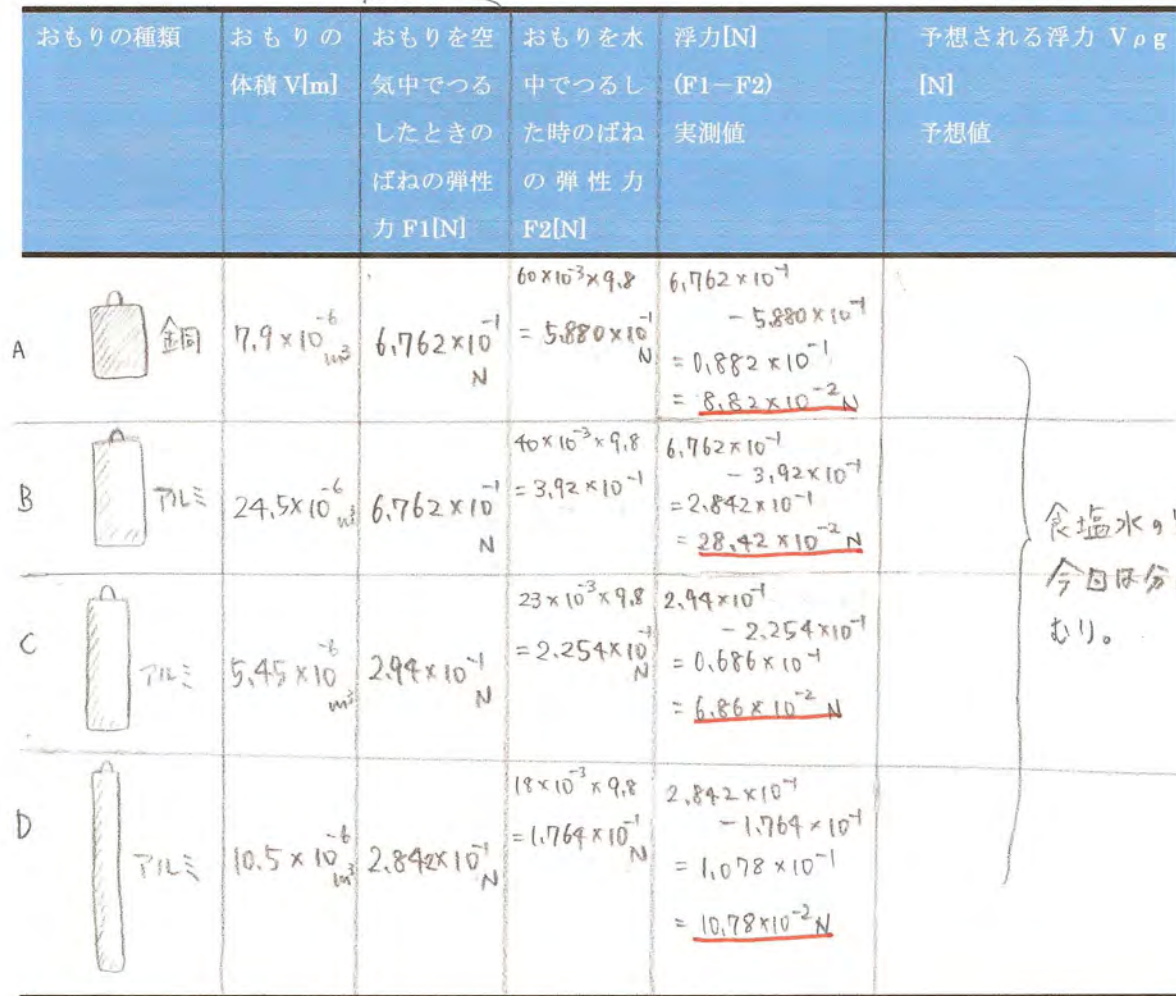 おもりの種類
おもりの
体積 V[m]
おもりを空
気中でつる
したときの
ばねの弾性
力 F1[N]
おもりを水
中でつるし
た時のばね
の弾性力
F2[N]
浮力[N]
(F1－F2)
実測値
予想される浮力 Vρg
[N]
予想値
A
銅
7.9×10⁻⁶
m³
6.762×10⁻¹
N
60×10⁻³×9.8
= 5.880×10⁻¹
N
6.762×10⁻¹
- 5.880×10⁻¹
= 0.882×10⁻¹
= 8.82×10⁻² N
B
アルミ
24.5×10⁻⁶
m³
6.762×10⁻¹
N
40×10⁻³×9.8
= 3.92×10⁻¹
6.762×10⁻¹
- 3.92×10⁻¹
= 2.842×10⁻¹
= 28.42×10⁻² N
C
アルミ
5.45×10⁻⁶
m³
2.94×10⁻¹
N
23×10⁻³×9.8
= 2.254×10⁻¹
N
2.94×10⁻¹
- 2.254×10⁻¹
= 0.686×10⁻¹
= 6.86×10⁻² N
D
アルミ
10.5×10⁻⁶
m³
2.842×10⁻¹
N
18×10⁻³×9.8
= 1.764×10⁻¹
N
2.842×10⁻¹
- 1.764×10⁻¹
= 1.078×10⁻¹
= 10.78×10⁻² N
食塩水の
今回は分
むり。